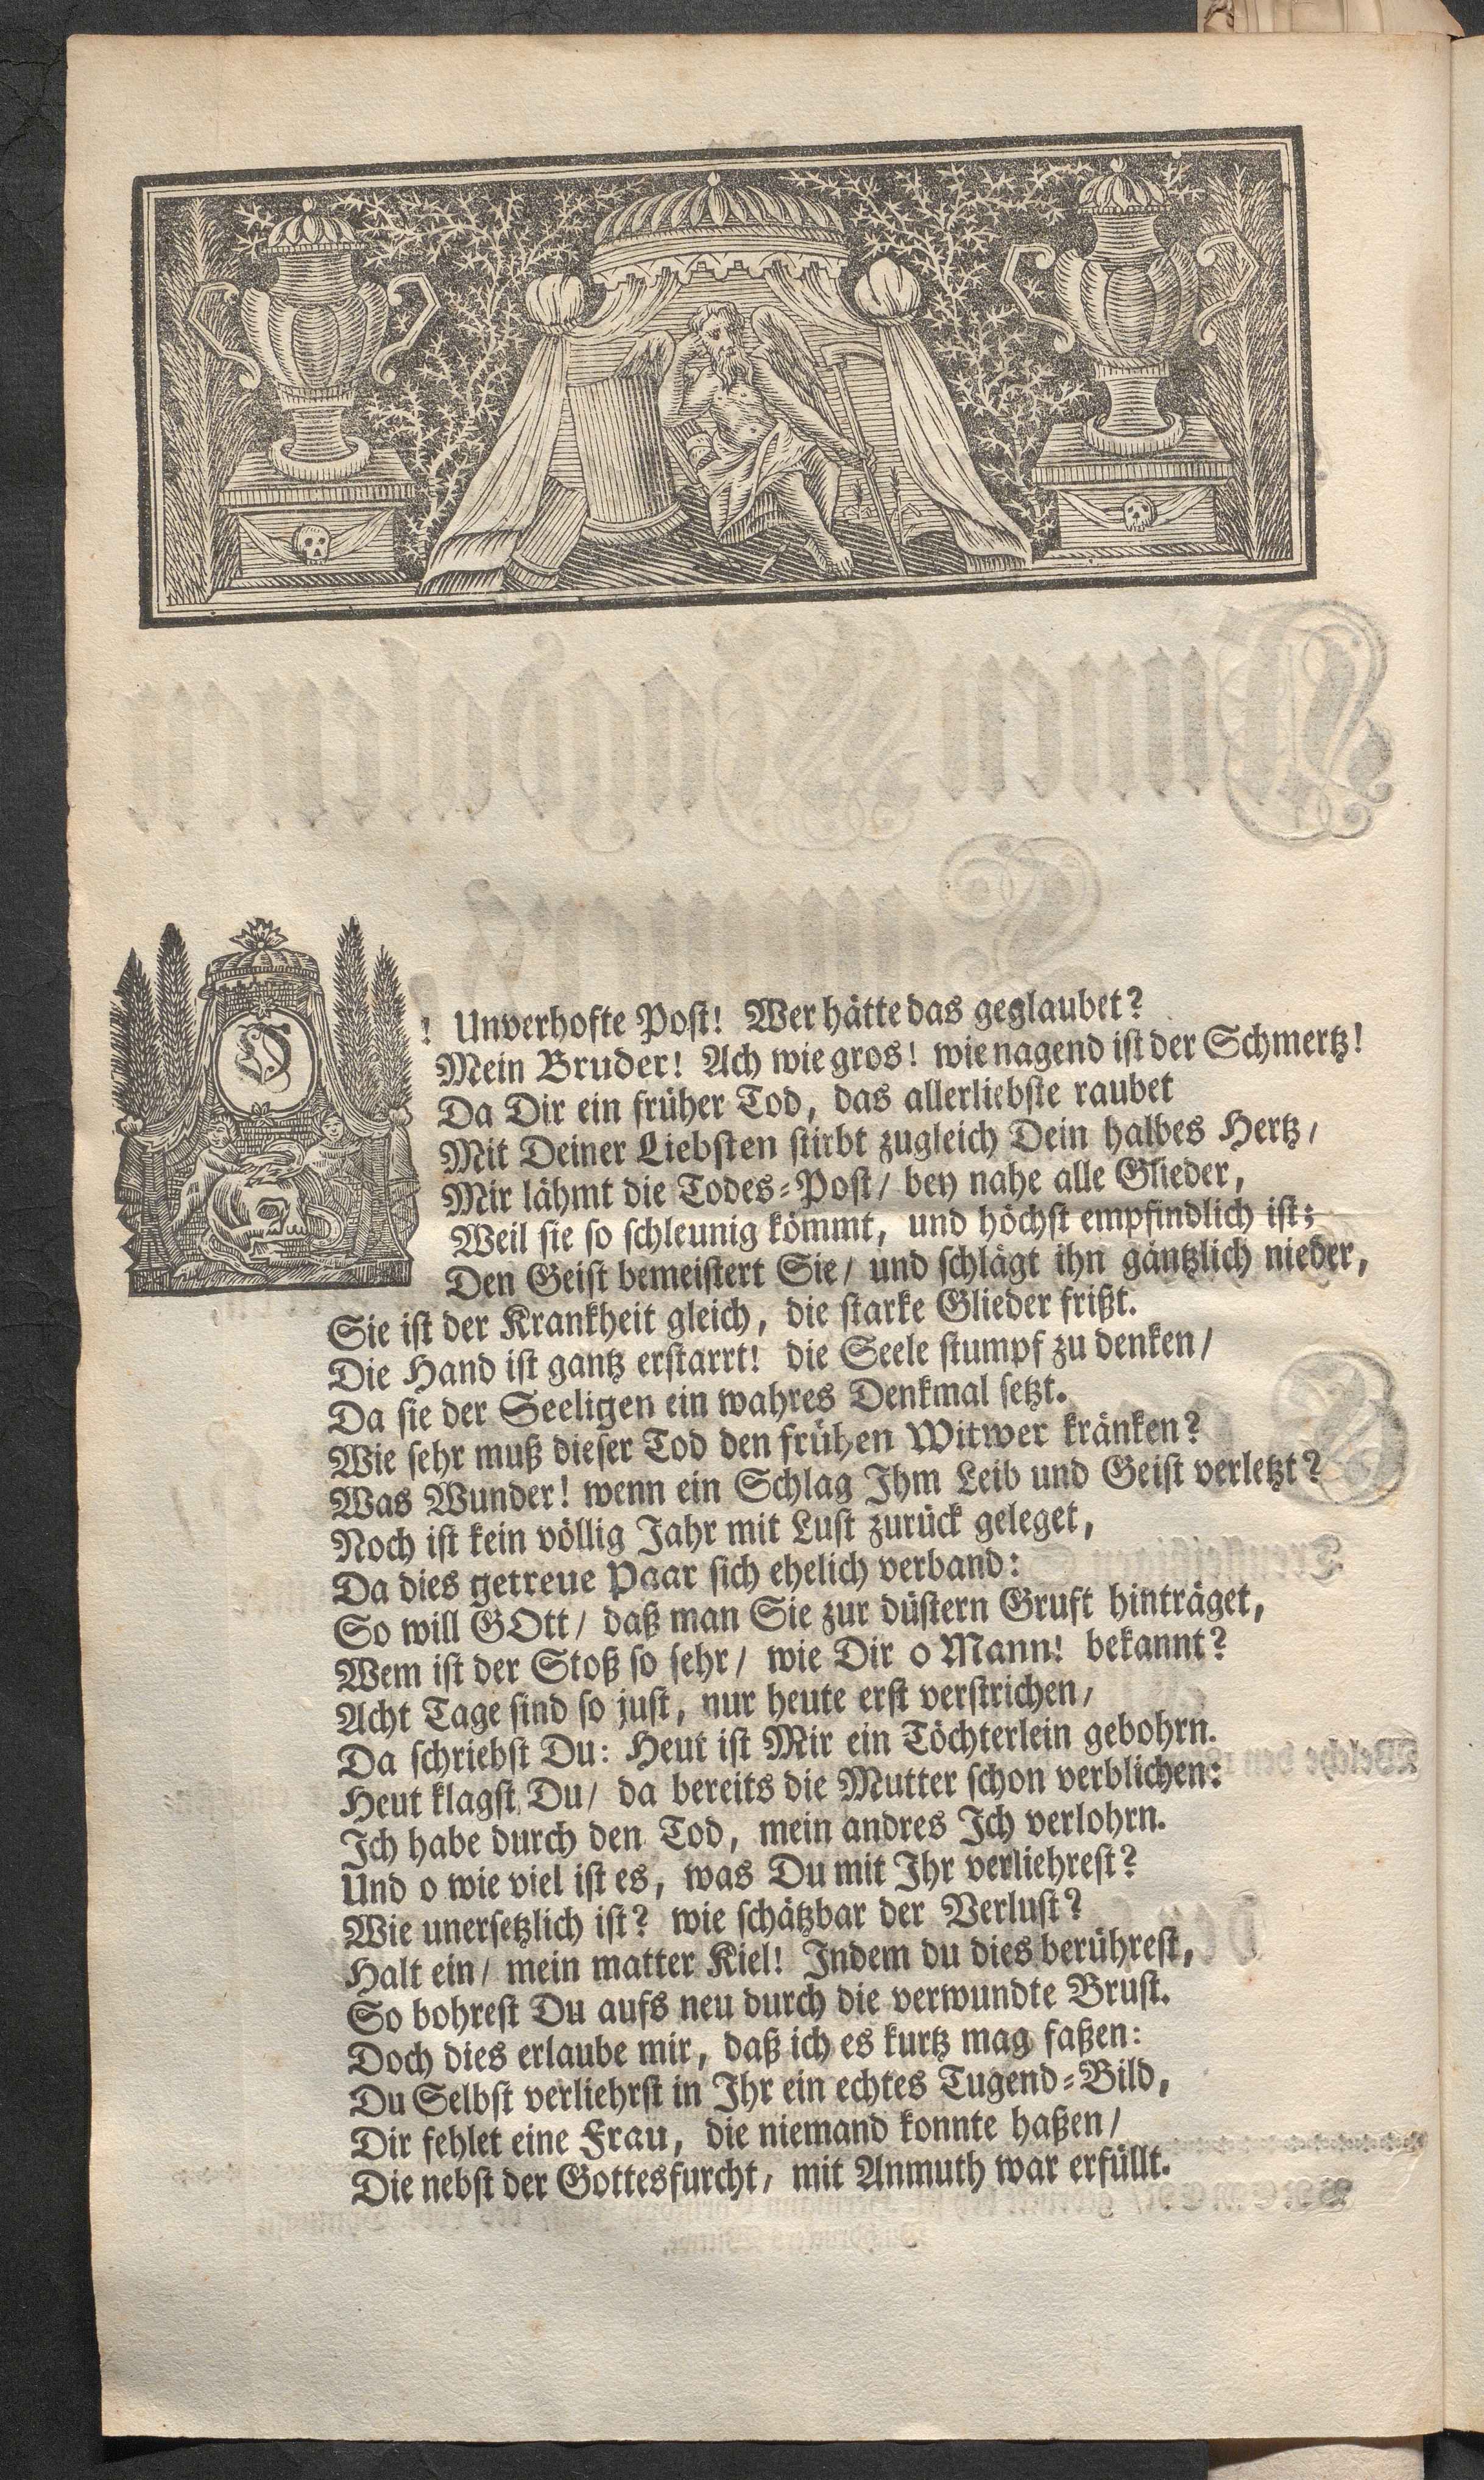 O! Unverhofte Post! Wer hätte das geglaubet?
Mein Bruder! Ach wie gros! wie nagend ist der Schmertz!
Da Dir ein früher Tod, das allerliebste raubet
Mit Deiner Liebsten stirbt zugleich Dein halbes Hertz/
Mir lähmt die Todes-Post/ bey nahe alle Glieder,
Weil sie so schleunig kömmt, und höchst empfindlich ist;
Den Geist bemeistert Sie/ und schlägt ihn gäntzlich nieder,
Sie ist der Krankheit gleich, die starke Glieder frißt.
Die Hand ist gantz erstarrt! die Seele stumpf zu denken/
Da sie der Seeligen ein wahres Denkmal setzt.
Wie sehr muß dieser Tod den frühen Witwer kränken?
Was Wunder! wenn ein Schlag Ihm Leib und Geist verletzt?
Noch ist kein völlig Jahr mit Lust zurück geleget,
Da dies getreue Paar sich ehelich verband:
So will GOtt/ daß man Sie zur düstern Gruft hinträget,
Wem ist der Stoß so sehr/ wie Dir o Mann! bekannt?
Acht Tage sind so just, nur heute erst verstrichen/
Da schriebst Du: Heut ist Mir ein Töchterlein gebohrn.
Heut klagst Du/ da bereits die Mutter schon verblichen:
Ich habe durch den Tod, mein andres Ich verlohrn.
Und o wie viel ist es, was Du mit Ihr verliehrest?
Wie unersetzlich ist? wie schätzbar der Verlust?
Halt ein/ mein matter Kiel! Indem du dies berührest,
So bohrest Du aufs neu durch die verwundte Brust.
Doch dies erlaube mir, daß ich es kurtz mag faßen:
Du Selbst verliehrst in Ihr ein echtes Tugend-Bild,
Dir fehlet eine Frau, die niemand konnte haßen/
Die nebst der Gottesfurcht/ mit Anmuth war erfüllt.